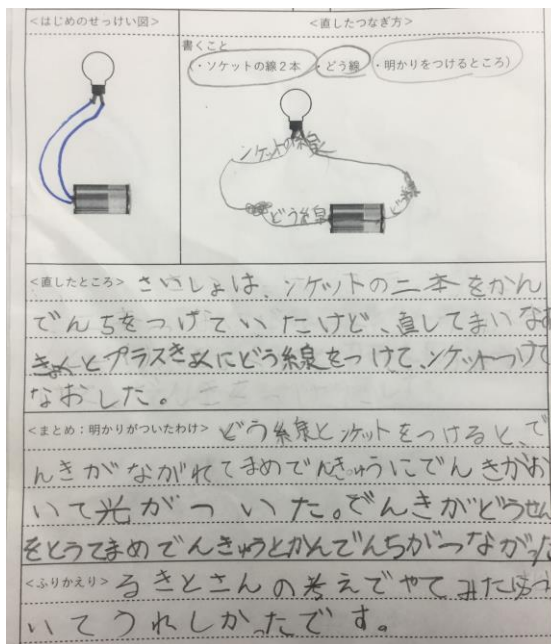 <はじめのせっけい図>
<直したつなぎ方>
書くこと
・ソケットの線2本 ・どう線 ・明かりをつけるところ)
ソケットの線
どう線
<直したところ> さいしょは、ソケットの二本をかん
でんちをつげていたけど、直してまいなす
きょくとプラスきょくにどう線をつけて、ソケットつけて
なおした。
<まとめ:明かりがついたわけ> どう線とソケットをつけると、で
んきがながれてまめでんきゅうにでんきがお
いて光がついた。でんきがどうせん
をとうてまめでんきゅうとかんでんちがつながった
<ふりかえり> るきとさんの考えでやてみたら
いてうれしかったです。